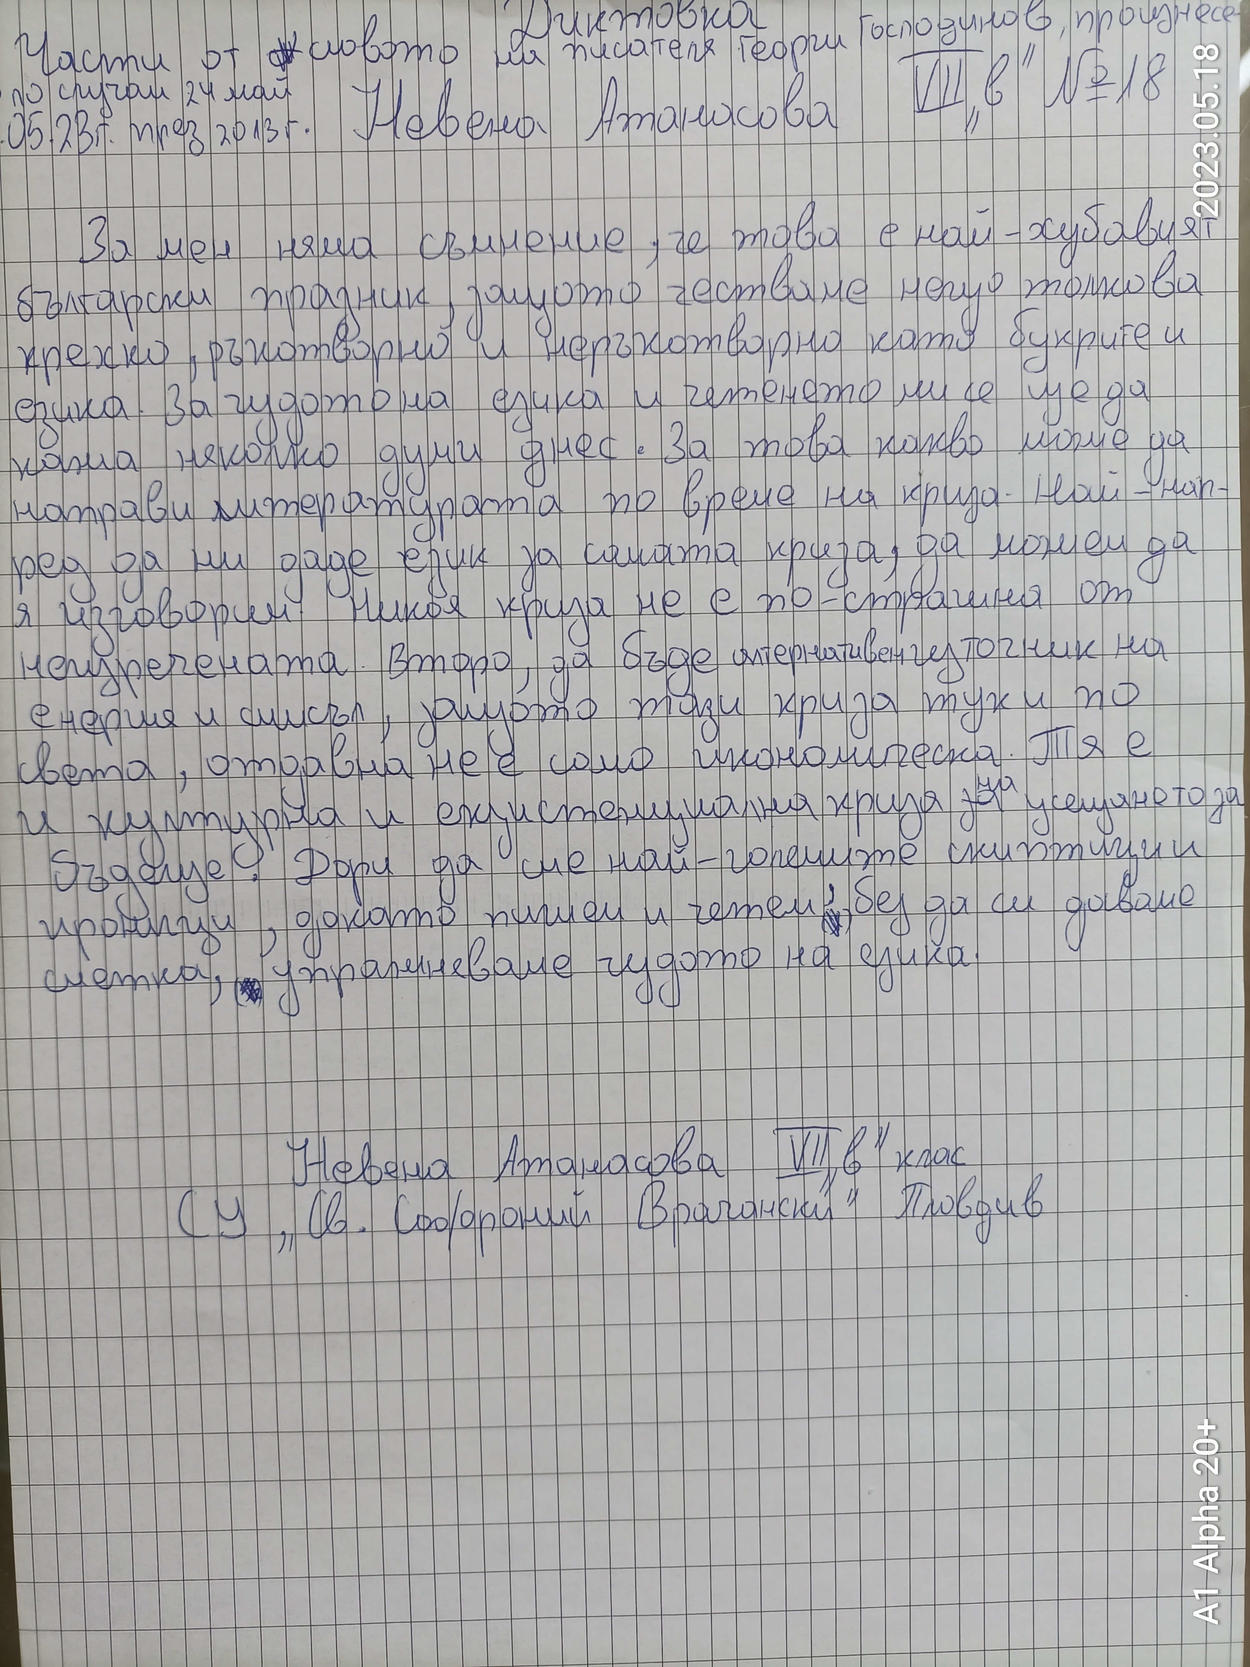 Диктовка
Части от словото на писателя Георги Господинов, произнесе-
по случай 24 май
.05.23г. през 2013г. Невена Атанасова VII „в" №18
2023.05.18
За мен няма съмнение, че това е най-хубавият
български празник, защото честваме нещо толкова
крехко, ръкотворно и неръкотворно като буквите и
езика. За чудото на езика и четенето ми се ще да
кажа няколко думи днес. За това какво може да
направи литературата по време на криза. Най-нап-
ред да ни даде език за самата криза, да можем да
я изговорим. Никоя криза не е по-страшна от
неизречената. Второ, да бъде алтернативен източник на
енергия и смисъл, защото тази криза тук и по
света, отдавна не е само икономическа. Тя е
и културна и екзистенциална криза на усещането за
бъдеще. Дори да сме най-големите скиптици и
ироници, докато пишем и четем, без да си даваме
сметка, упражняваме чудото на езика.
Невена Атанасова VII „в" клас
СУ „Св. Софроний Врачански" Пловдив
A1 Alpha 20+